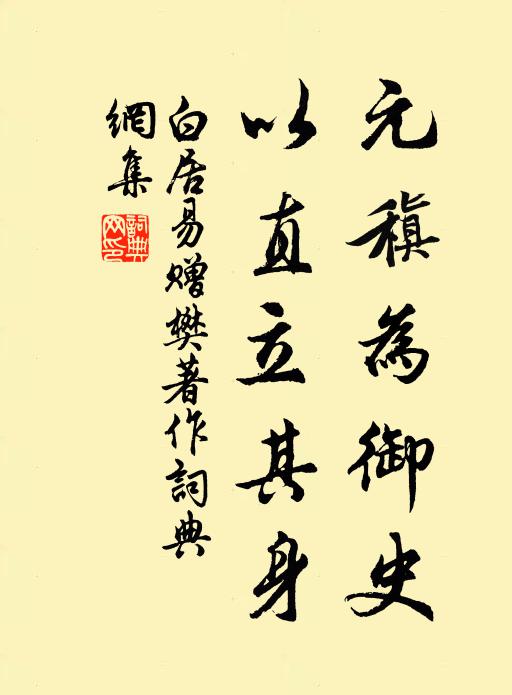 元稹為御史
以直立其身
白居易贈樊著作詞典
網集
詞典
网印